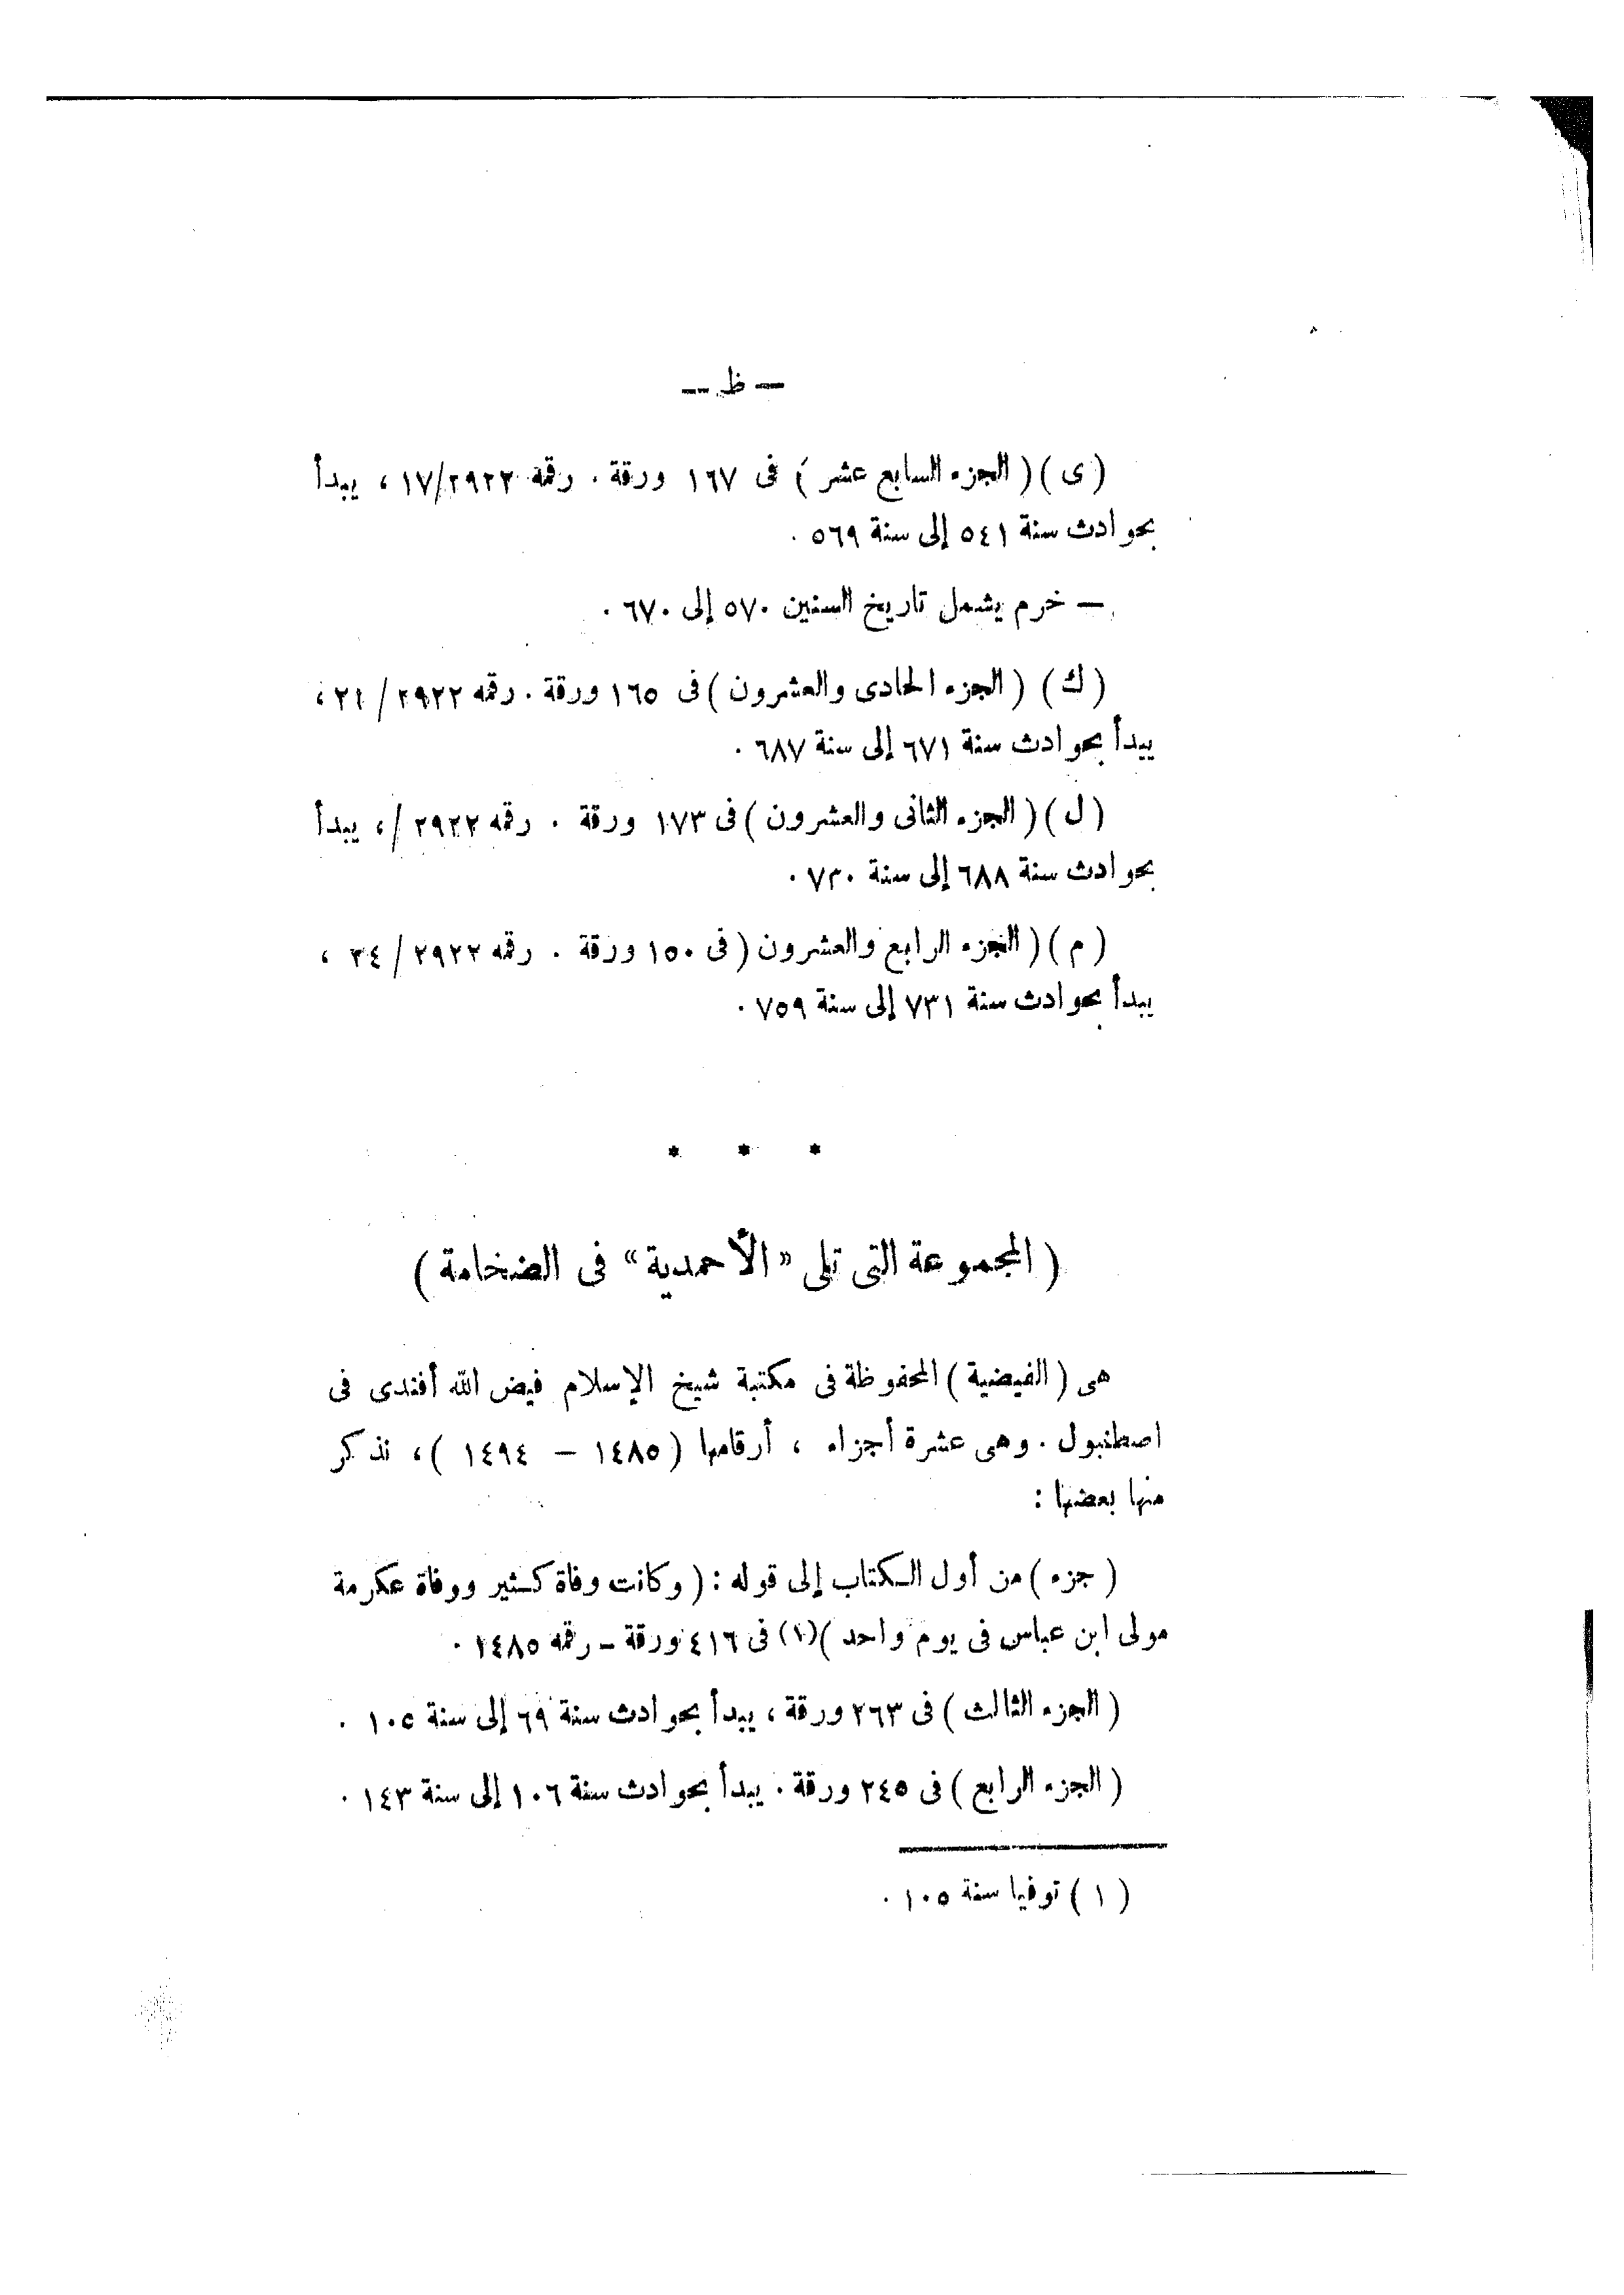 — ظ —
( ى ) ( الجزء السابع عشر ) فى ١٦٧ ورقة . رقمه ١٧/٢٩٢٢ ، يبدأ
بحوادث سنة ٥٤١ إلى سنة ٥٦٩ .
— خرم يشمل تاريخ السنين ٥٧٠ إلى ٦٧٠ .
( ك ) ( الجزء الحادى والعشرون ) فى ١٦٥ ورقة . رقمه ٢٩٢٢ / ٢١ ،
يبدأ بحوادث سنة ٦٧١ إلى سنة ٦٨٧ .
( ل ) ( الجزء الثانى والعشرون ) فى ١٧٣ ورقة . رقمه ٢٩٢٢ /، يبدأ
بحوادث سنة ٦٨٨ إلى سنة ٧٣٠ .
( م ) ( الجزء الرابع والعشرون ( فى ١٥٠ ورقة . رقمه ٢٩٢٢ / ٢٤ ،
يبدأ بحوادث سنة ٧٣١ إلى سنة ٧٥٩ .
* * *
( المجموعة التى تلى « الأحمدية » فى الضخامة )
هى ( الفيضية ) المحفوظة فى مكتبة شيخ الإسلام فيض الله أفندى فى
اصطنبول . وهى عشرة أجزاء ، أرقامها ( ١٤٨٥ – ١٤٩٤ ) ، نذكر
منها بعضها :
( جزء ) من أول الكتاب إلى قوله : ( وكانت وفاة كثير ووفاة عكرمة
مولى ابن عباس فى يوم واحد )(١) فى ٤١٦ ورقة – رقمه ١٤٨٥ .
( الجزء الثالث ) فى ٢٦٣ ورقة ، يبدأ بحوادث سنة ٦٩ إلى سنة ١٠٥ .
( الجزء الرابع ) فى ٢٤٥ ورقة . يبدأ بحوادث سنة ١٠٦ إلى سنة ١٤٣ .
( ١ ) توفيا سنة ١٠٥ .